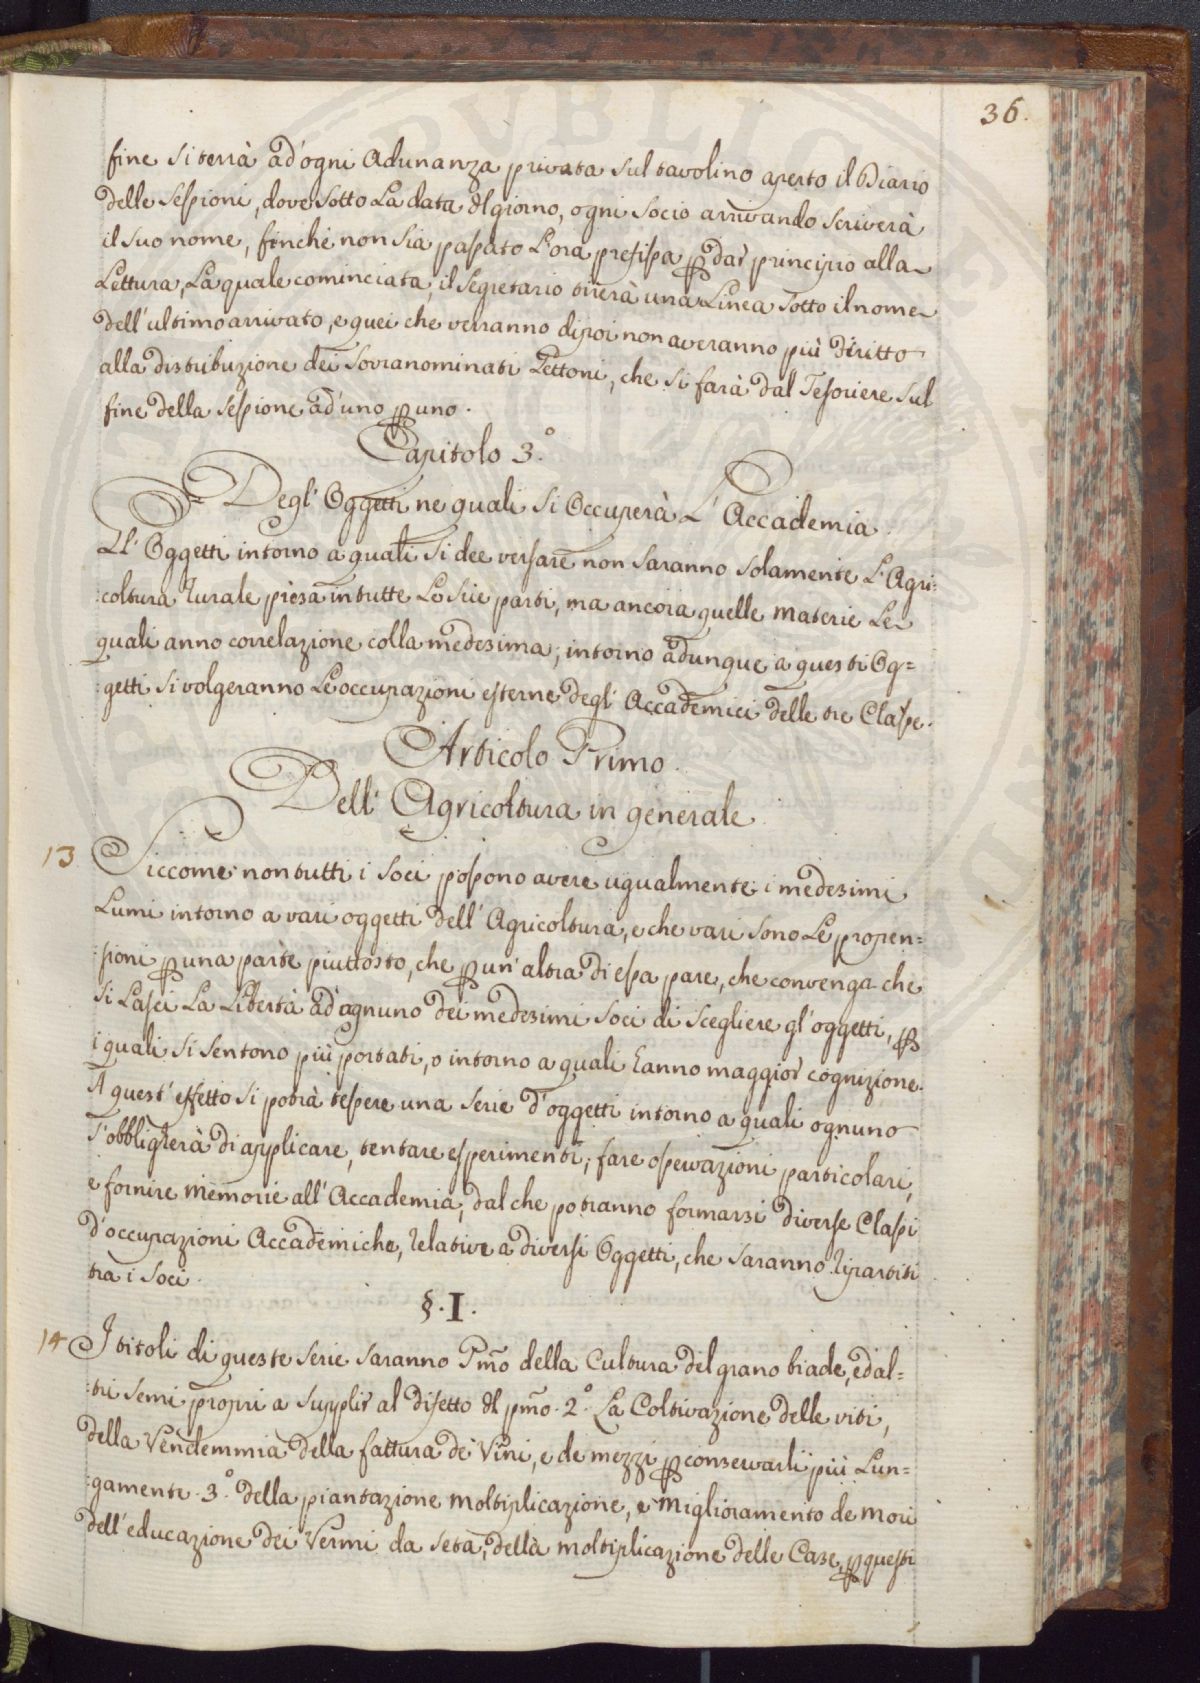 36.
fine si terrà ad'ogni Adunanza privata sul tavolino aperto il Diario
delle Sessioni, dove sotto La data dl giorno, ogni Socio arrivando scriverà
il suo nome, finchè non sia passato L'ora prefissa p dar principio alla
Lettura, La quale cominciata, il Segretario tirerà una Linea sotto il nome
dell'ultimo arrivato, e quei che verranno dipoi non averanno più diritto
alla distribuzione dei sovranominati Gettoni, che si farà dal Tesoriere sul
fine della Sessione ad'uno p uno.
Capitolo 3.°
Degl' Oggetti ne quali si Occuperà L' Accademia.
Gl' Oggetti intorno a quali si dee versare non saranno solamente L'Agri:
:coltura Rurale presa in tutte Le sue parti, ma ancora quelle materie Le
quali anno correlazione colla medesima; intorno adunque a questi Og=
:getti si volgeranno Le occupazioni esterne degl' Accademici delle tre Classe.
Articolo Primo.
Dell' Agricoltura in generale
13 Siccome non tutti i Soci possono avere ugualmente i medesimi
Lumi intorno a vari oggetti dell' Agricoltura, e che vari sono Le propen=
:sioni p una parte piuttosto, che p un' altra di essa pare, che convenga che
si Lasci La Libertà ad'ognuno dei medesimi Soci di scegliere gl'oggetti, p
i quali si sentono più portati, o intorno a quali hanno maggior cognizione.
A quest' effetto si potrà tessere una serie d'oggetti intorno a quali ognuno
s'obbligherà di applicare, tentare esperimenti, fare operazioni particolari,
e fornire memorie all' Accademia, dal che potranno formarsi diverse Classi
d'occupazioni Accademiche, relative a diversi Oggetti, che saranno ripartiti
tra i Soci.
§. I.
14 I titoli di queste serie saranno Pmo della Cultura del grano biade, ed al=
:tri semi proprii a supplir al difetto dl pmo. 2.° La Coltivazione delle viti,
della Vendemmia della fattura de Vini, e de mezzi p conservarli più Lun=
:gamente. 3.° della piantazione moltiplicazione, e miglioramento de mori
dell'educazione dei Vermi da seta, della moltiplicazione delle Case, p questi